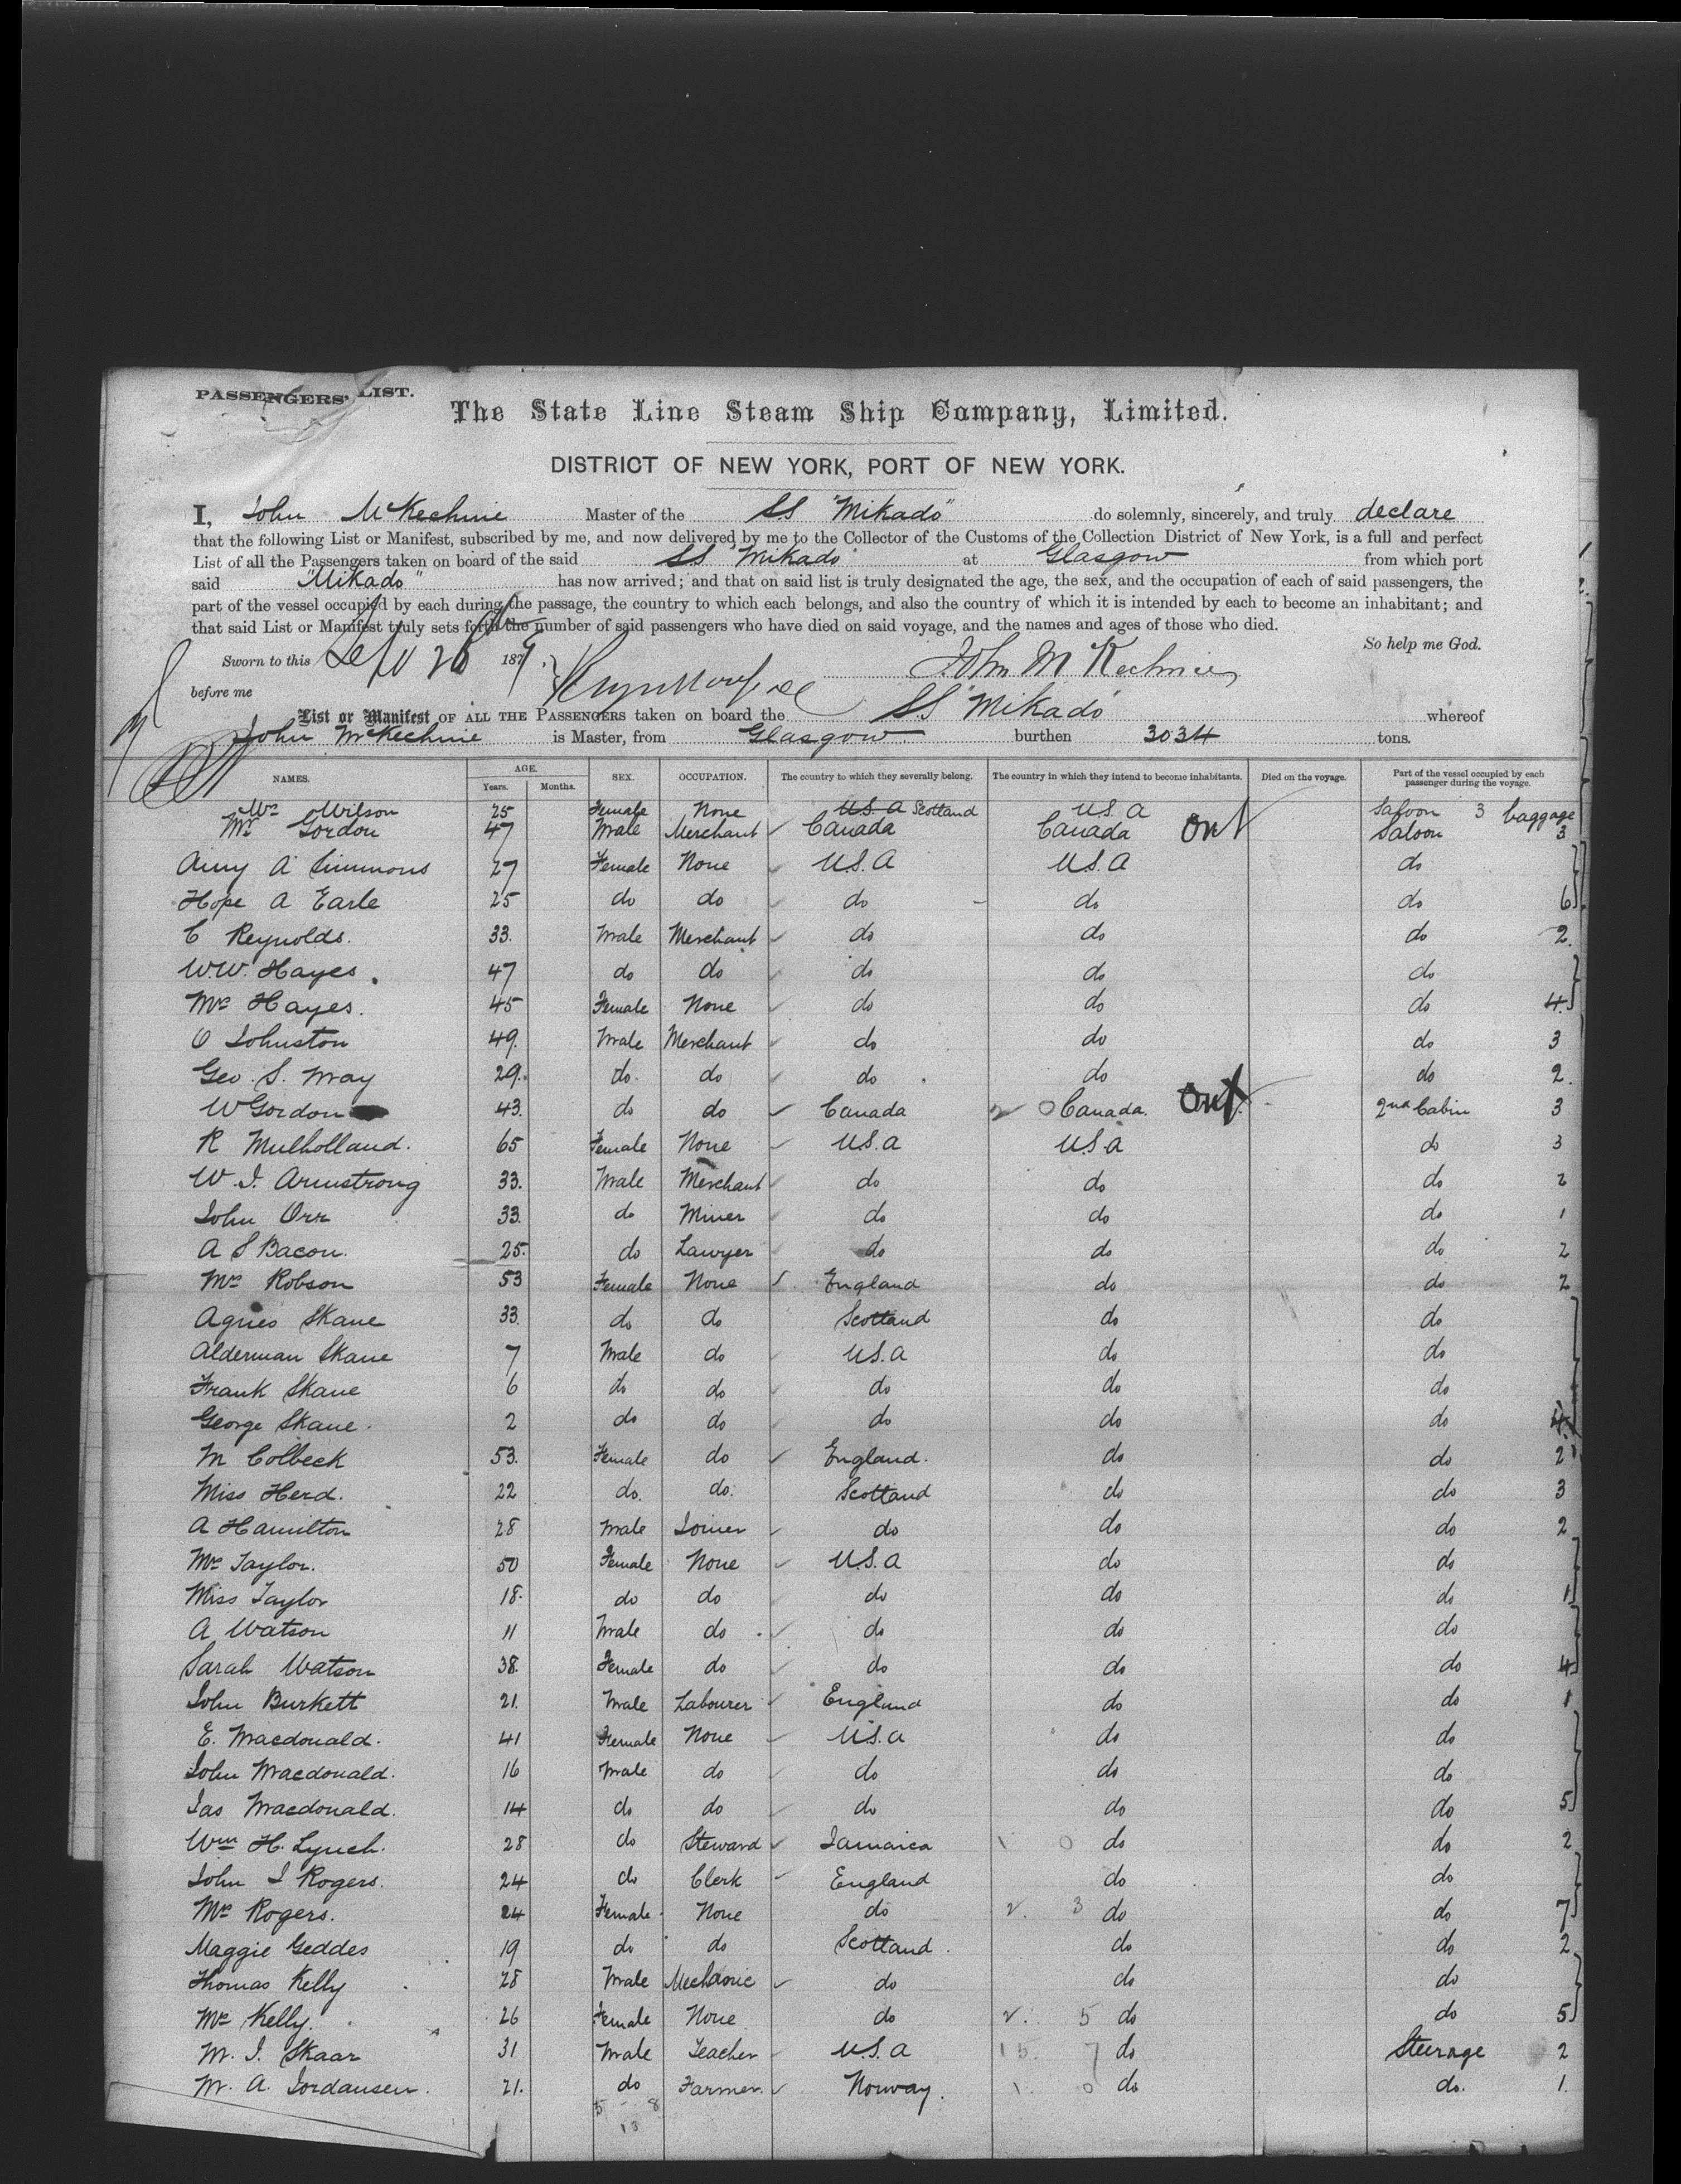 PASSENGERS' LIST.
The State Line Steam Ship Company, Limited.
DISTRICT OF NEW YORK, PORT OF NEW YORK.
I, John McKechnie Master of the SS "Mikado" do solemnly, sincerely, and truly declare
that the following List or Manifest, subscribed by me, and now delivered by me to the Collector of the Customs of the Collection District of New York, is a full and perfect
List of all the Passengers taken on board of the said SS "Mikado" at Glasgow from which port
said "Mikado" has now arrived; and that on said list is truly designated the age, the sex, and the occupation of each of said passengers, the
part of the vessel occupied by each during the passage, the country to which each belongs, and also the country of which it is intended by each to become an inhabitant; and
that said List or Manifest truly sets forth the number of said passengers who have died on said voyage, and the names and ages of those who died.
So help me God.
Sworn to this 187
John McKechnie
before me
List or Manifest OF ALL THE PASSENGERS taken on board the SS "Mikado" whereof
John McKechnie is Master, from Glasgow burthen 3034 tons.
NAMES. AGE. Years. Months. SEX. OCCUPATION. The country to which they severally belong. The country in which they intend to become inhabitants. Died on the voyage. Part of the vessel occupied by each passenger during the voyage.
Mrs Wilson 25 Female None U.S.A Scotland U.S.A Saloon 3 baggage
Mr Gordon 47 Male Merchant Canada Canada Out Saloon 3
Amy A Simmons 27 Female None U.S.A U.S.A do
Hope A Earle 25 do do do do do 6
C Reynolds. 33. Male Merchant do do do 2.
W.W. Hayes. 47 do do do do do
Mrs Hayes. 45 Female None do do do 4.
O Johnston 49. Male Merchant do do do 3
Geo. S. May 29. do. do do do do 2.
W Gordon 43. do do Canada 2 0 Canada. Out. 2nd Cabin 3
R Mulholland. 65 Female None U.S.A U.S.A do 3
W. J. Armstrong 33. Male Merchant do do do 2
John Orr 33. do Miner do do do 1
A S Bacon. 25. do Lawyer do do do 2
Mrs Robson 53 Female None England do do 2
Agnes Skane 33. do do Scotland do do
Alderman Skane 7 Male do U.S.A do do
Frank Skane 6 do do do do do
George Skane. 2 do do do do do 4.
M Colbeck 53. Female do England. do do 2
Miss Herd. 22 do. do. Scotland do do 3
A Hamilton 28 Male Joiner do do do 2
Mrs Taylor. 50 Female None U.S.A do do
Miss Taylor 18. do do do do do 1
A Watson 11 Male do do do do
Sarah Watson 38. Female do do do do 4
John Burkett 21. Male Labourer England do do 1
E. Macdonald. 41 Female None U.S.A do do
John Macdonald. 16 Male do do do do
Jas Macdonald. 14 do do do do do 5
Wm H. Lynch. 28 do Steward Jamaica 1 0 do do 2
John J Rogers. 24 do Clerk England do do
Mrs Rogers. 24 Female None do 2. 3 do do 7
Maggie Geddes 19 do do Scotland. do do 2
Thomas Kelly 28 Male Mechanic do do do
Mrs Kelly. 26 Female None do 2. 5 do do 5
M. J. Skaar 31 Male Teacher U.S.A 15. 7 do Steerage 2
M. A. Jordansen. 21. do Farmer. Norway. 1. 0 do do. 1.
5 - 8
13